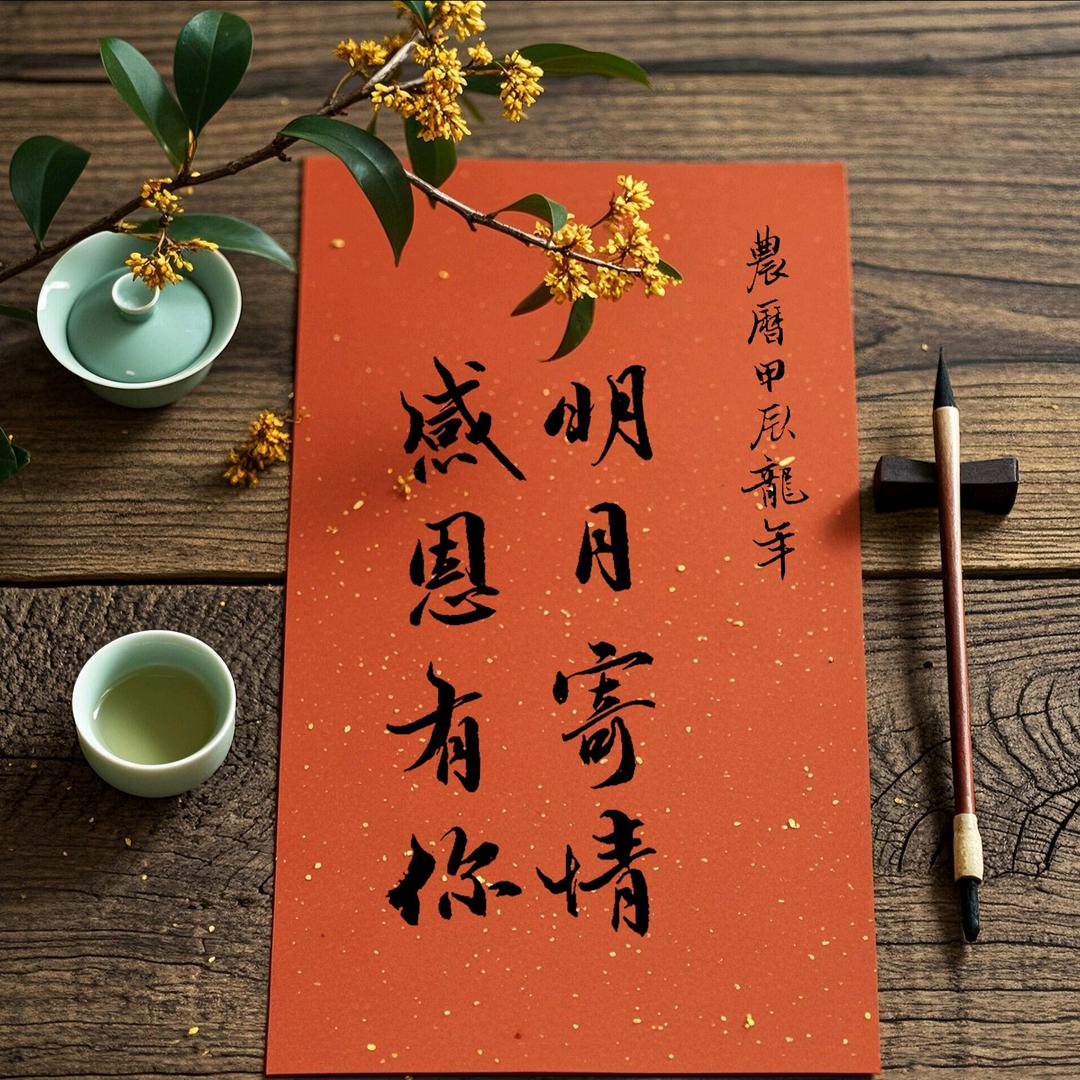 農曆甲辰龍年
明月寄情
感恩有你